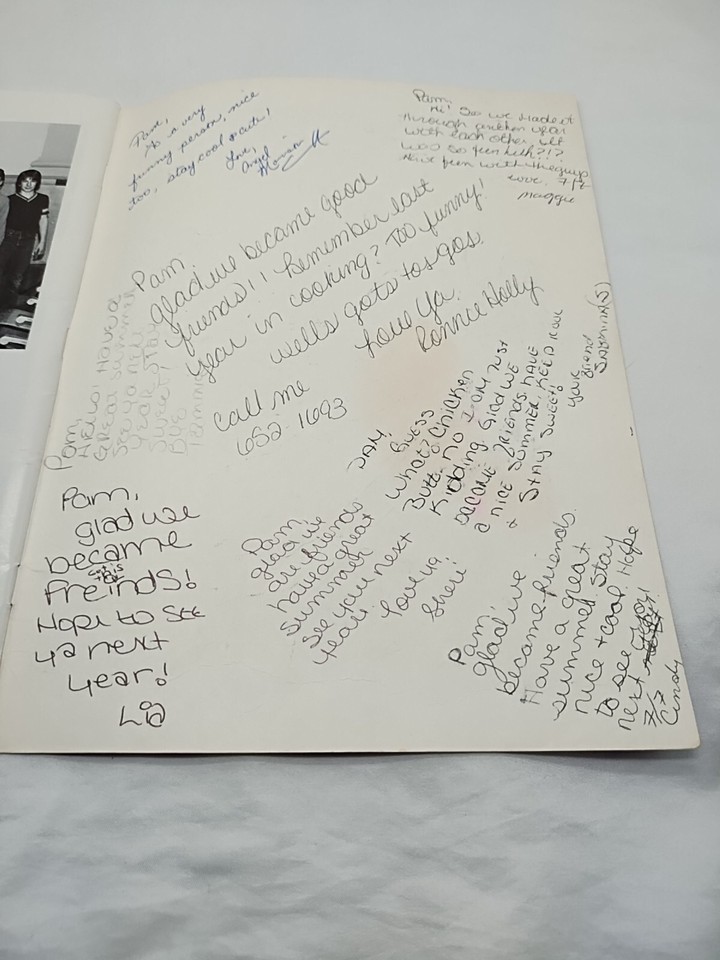 Pam,
Ya a very
funny person, nice
too, stay cool & cute!
love,
Angel
Pam,
Hi! So we made it
through another year
with each other. It
was so fun huh?!?
Have fun with the guys
Love,
Maggie
Pam,
glad we became good
friends!! Remember last
year in cooking? Too funny!
wells gots to go.
Love Ya.
Ronnie Holly
call me
652-1693
Pam,
Hello! Have a
Great summer
See ya next
year. Stay
Sweet!
Bye
Pam,
glad we
became
Freinds!
Hope to See
ya next
year!
Pam,
glad we
are friends
have a great
summer
see you next
year.
Love ya,
Sheri
PAM!
GUESS
What? Chicken
Butt. no I am Just
Kidding. Glad WE
BECAME FRIENDS. HAVE
a NICE SUMMER. KEEP KOOL
+ STAY SWEET!
your
friend
Pam,
glad we
became friends.
Have a great
summer. Stay
nice + cool. Hope
to see you
next
Cindy